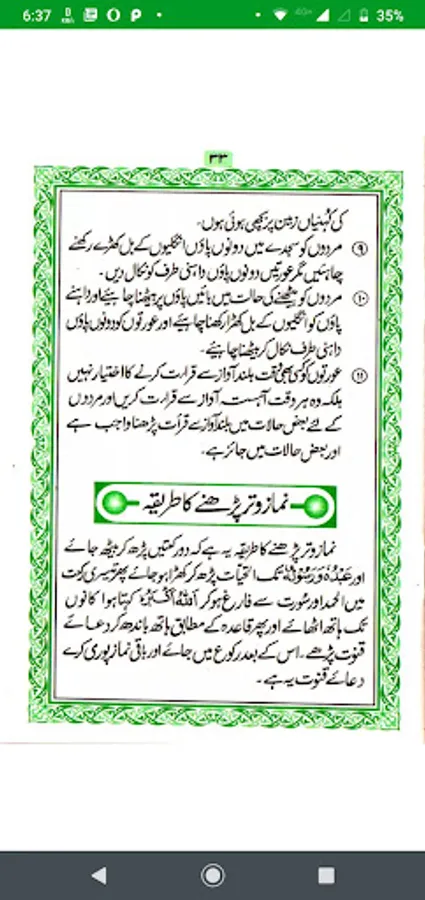 6:37
0
KB/s
4G+
35%
۳۳
کی کہنیاں زمین پر بچھی ہوئی ہوں۔
۹ مردوں کو سجدے میں دونوں پاؤں انگلیوں کے بل کھڑے رکھنے
چاہئیں مگر عورتیں دونوں پاؤں داہنی طرف کو نکال دیں۔
۱۰ مردوں کو بیٹھنے کی حالت میں بائیں پاؤں پر بیٹھنا چاہئے اور داہنے
پاؤں کو انگلیوں کے بل کھڑا رکھنا چاہئے اور عورتوں کو دونوں پاؤں
داہنی طرف نکال کر بیٹھنا چاہئے۔
۱۱ عورتوں کو کسی بھی وقت بلند آواز سے قرارت کرنے کا اختیار نہیں
بلکہ وہ ہر وقت آہستہ آواز سے قرارت کریں اور مردوں
کے لئے بعض حالات میں بلند آواز سے قرأت پڑھنا واجب ہے
اور بعض حالات میں جائز ہے۔
نماز وتر پڑھنے کا طریقہ
نماز وتر پڑھنے کا طریقہ یہ ہے کہ دو رکعتیں پڑھ کر بیٹھ جائے
اور عَبْدُهٗ وَرَسُوْلُهٗ تک التحیات پڑھ کر کھڑا ہو جائے پھر تیسری رکعت
میں الحمد اور سورت سے فارغ ہو کر اَللّٰهُ اَكْبَرُ کہتا ہوا کانوں
تک ہاتھ اٹھائے اور پھر قاعدہ کے مطابق ہاتھ باندھ کر دعائے
قنوت پڑھے۔ اس کے بعد رکوع میں جائے اور باقی نماز پوری کرے
دعائے قنوت یہ ہے۔